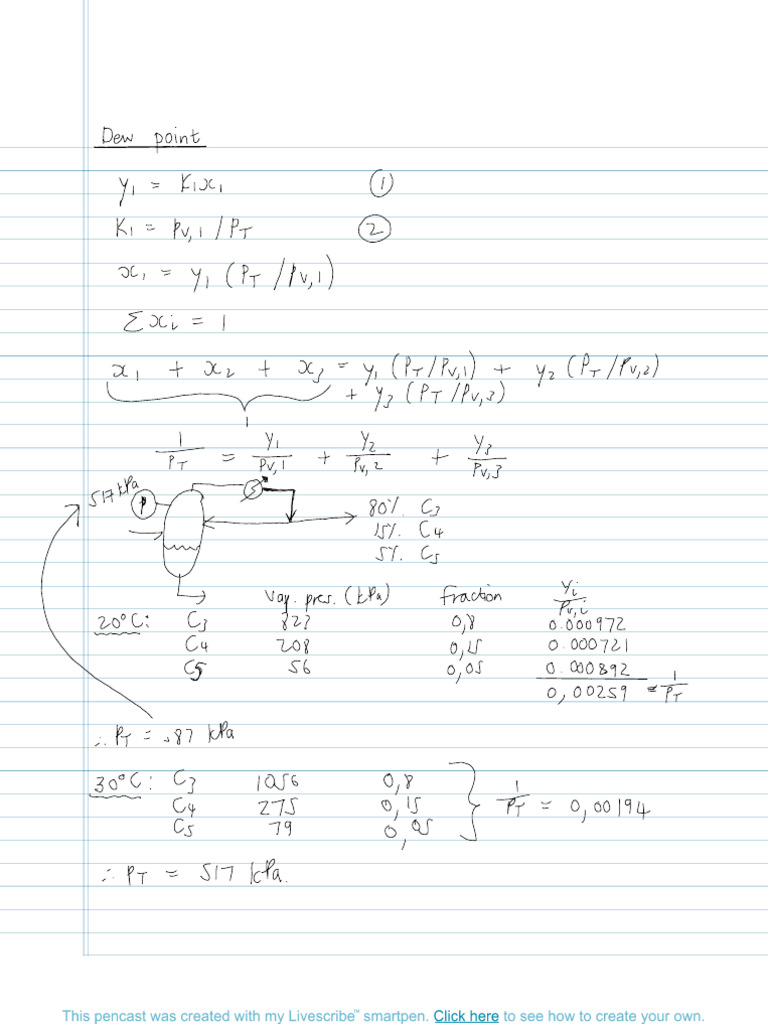 Dew point
y1 = K1x1 ①
K1 = Pv,1 / PT ②
x1 = y1 (PT / Pv,1)
Σxi = 1
x1 + x2 + x3 = y1 (PT/Pv,1) + y2 (PT/Pv,2)
+ y3 (PT/Pv,3)
1
1/PT = y1/Pv,1 + y2/Pv,2 + y3/Pv,3
517 kPa
P
S
80% C3
15% C4
5% C5
Vap. pres. (kPa) fraction yi/Pv,i
20°C: C3 823 0,8 0.000972
C4 208 0,15 0.000721
C5 56 0,05 0.000892
0,00259 = 1/PT
∴ PT = 387 kPa
30°C: C3 1056 0,8
C4 275 0,15 1/PT = 0,00194
C5 79 0,05
∴ PT = 517 kPa.
This pencast was created with my Livescribe™ smartpen. Click here to see how to create your own.